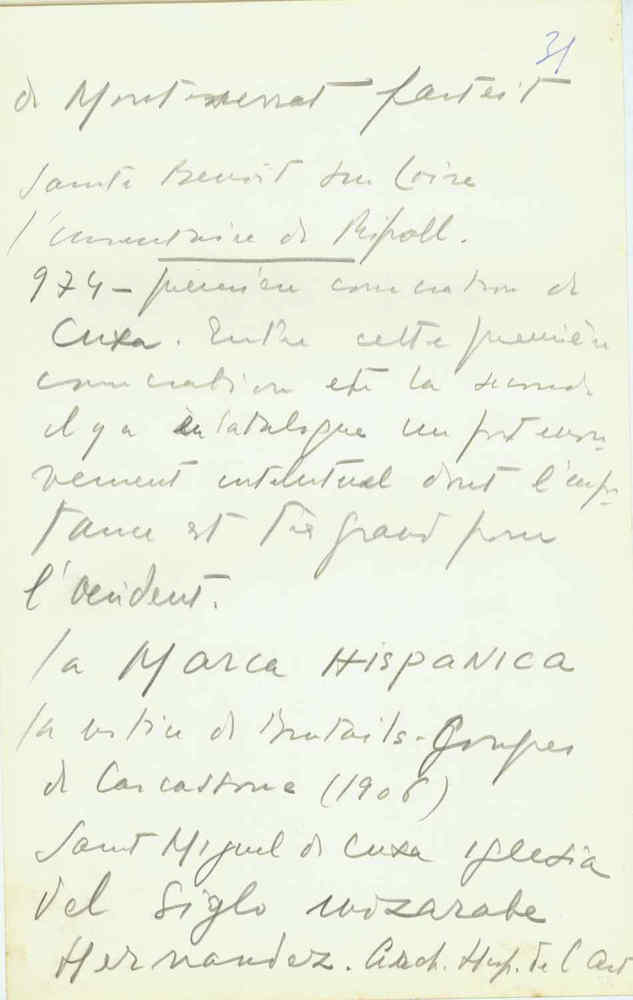 31
de Montserrat
Sainte Benoit sur Loire
l'inventaire de Ripoll.
974 — première consecration de
Cuxa. Entre cette première
consecration et la seconde
il y a en Catalogne un fort mou-
vement intelectuel dont l'impor-
tance est très grand pour
l'occident.
la MARCA HISPANICA
la notice de Brutails - Congres
de Carcassone (1906)
Sant Miguel de Cuxa iglesia
del siglo mozarabe
Hernandez. Arch. Hisp. de l'Art